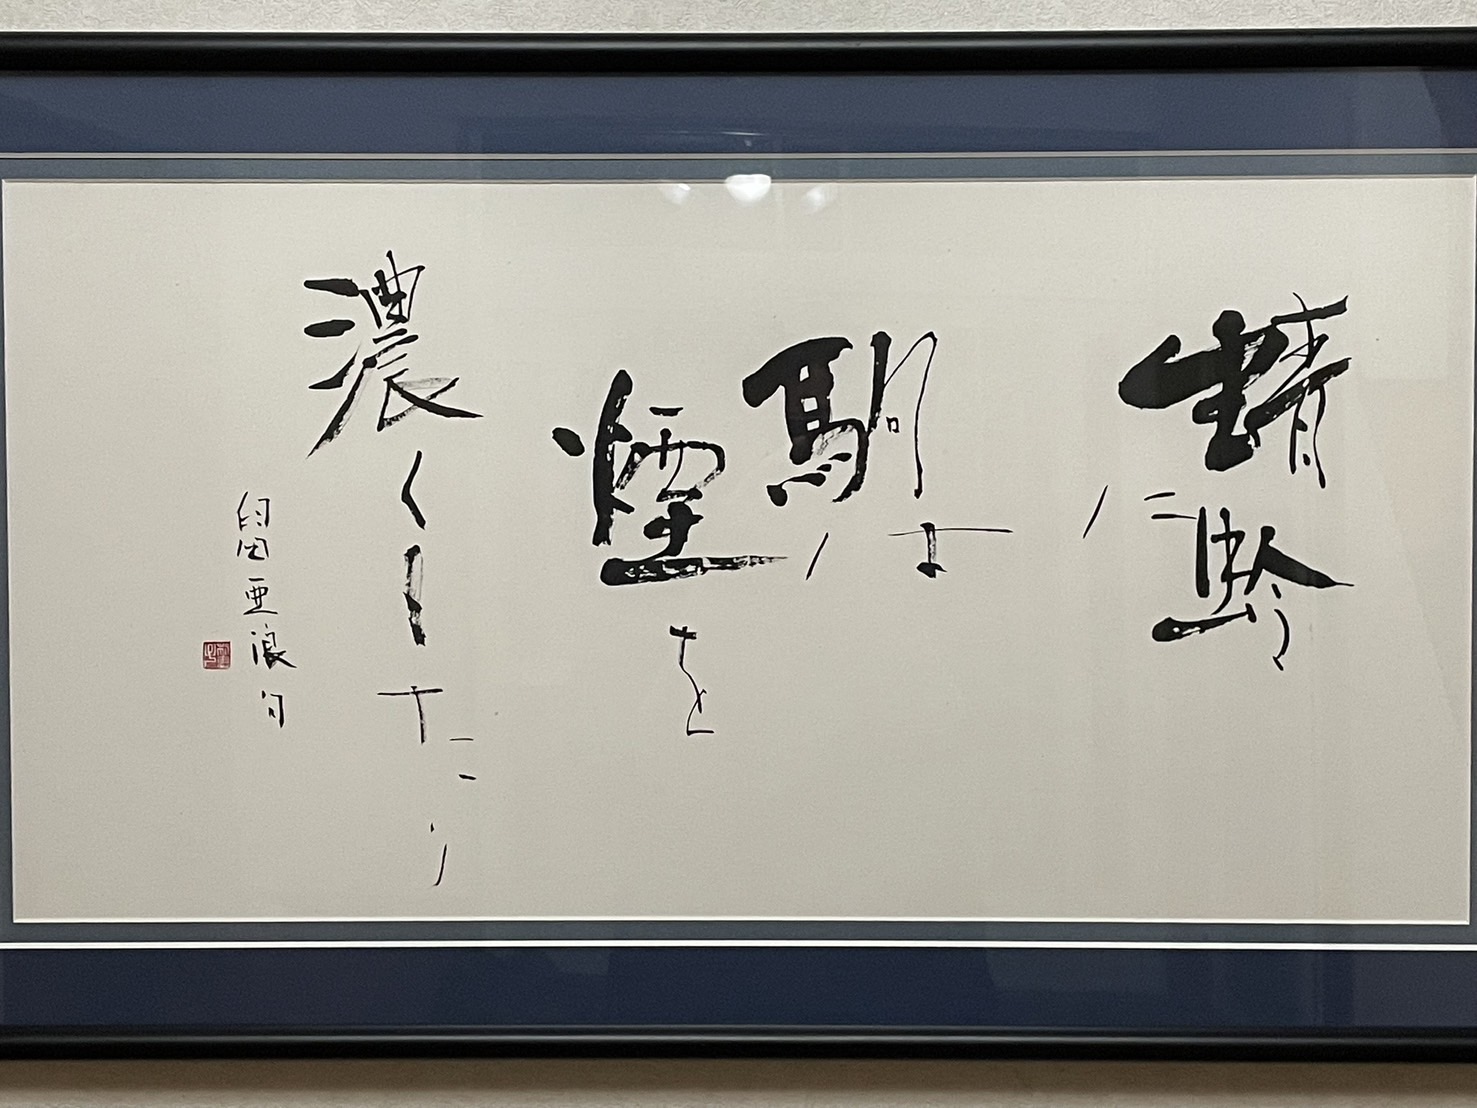 蜻蛉に
駒は
煙を
濃くしたり
臼田亜浪句